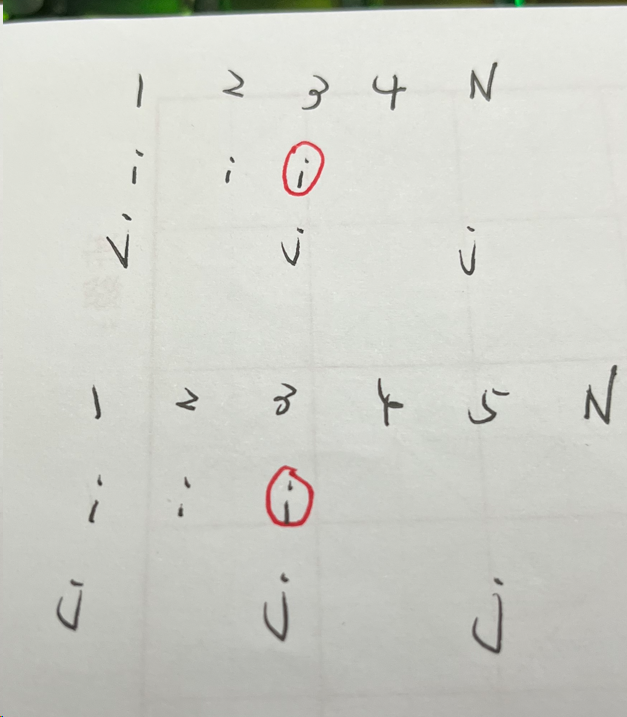 1 2 3 4 N
i i i
j j j
1 2 3 4 5 N
i i i
j j j